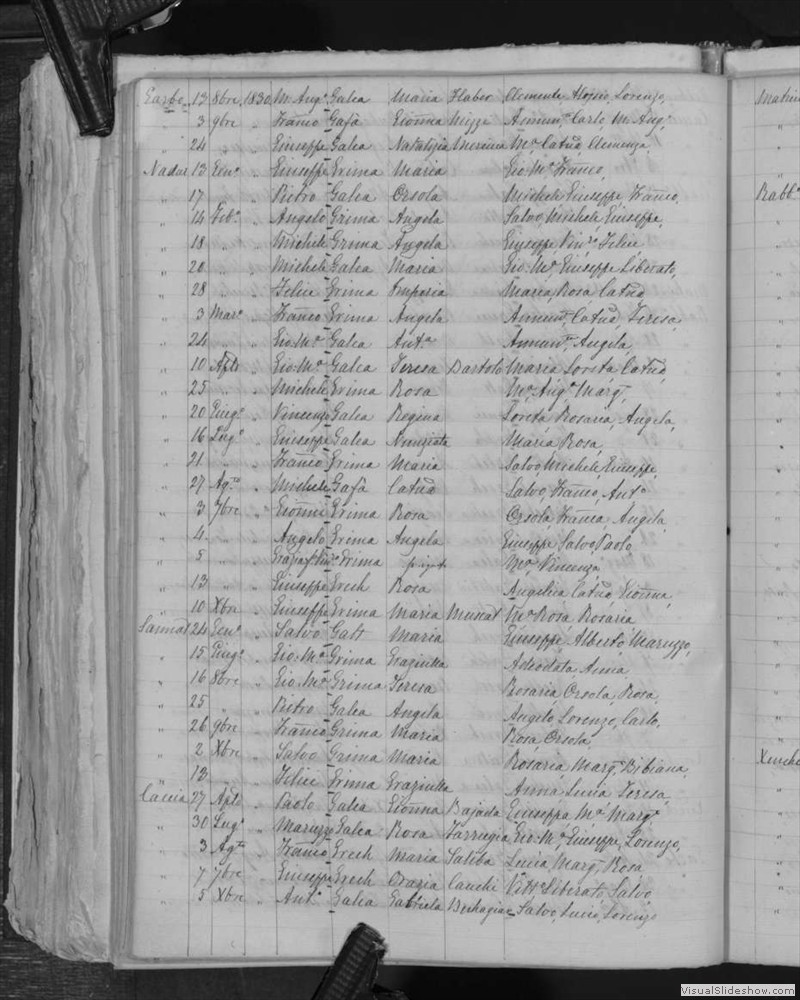 Garbo 13 8bre 1830 M. Ang.o Galea Maria Flaber Clemente, Aloisio, Lorenzo,
„ 3 9bre „ Franco Gafà Gionna Mizzi Annun.a Carlo, M. Ang.o
„ 24 „ „ Giuseppe Galea Natalizia M.a Catna Clemenza,
Nadur 13 Gen.o „ Giuseppe Grima Maria Gio. M.a Franco,
„ 17 „ „ Pietro Galea Orsola Michele, Giuseppe, Franco,
„ 14 Feb.o „ Angelo Grima Angela Salvo, Michele, Giuseppe,
„ 18 „ „ Michele Grima Angela Giuseppe Vin.o Felice
„ 20 „ „ Michele Galea Maria Gio. M.a, Giuseppe Liberato,
„ 28 „ „ Felice Grima Imperia Maria, Rosa Catna
„ 3 Mar.o „ Franco Grima Angela Annun.a, Catna Teresa
„ 24 „ „ Gio. M.a Galea Ant.a Annun.a, Angela,
„ 10 Aple „ Gio. M.a Galea Teresa Bartolo Maria Loreta Catna,
„ 25 „ „ Michele Grima Rosa M.a Ang.a Marg,
„ 20 Giug.o „ Vincenzo Galea Regina Loreta, Rosaria, Angela,
„ 16 Lug.o „ Giuseppe Galea Nunziata Maria Rosa,
„ 21 „ „ Franco Grima Maria Salvo Michele, Giuseppe,
„ 27 Ag.to „ Michele Gafà Catna Salvo, Franco, Ant.o
„ 3 7bre „ Gionni Grima Rosa Orsola, Franca, Angela,
„ 4 „ „ Angelo Grima Angela Giuseppe Salvo Paolo,
„ 5 „ „ Grima M.a Vincenza
„ 13 „ „ Giuseppe Grech Rosa Angelica Catna Gionna,
„ 10 Xbre „ Giuseppe Grima Maria Muscat M.a Rosa, Rosaria
Sannat 24 Gen.o „ Salvo Galt Maria Giuseppe, Alberto, Maruzzo,
„ 15 Giug.o „ Gio. M.a Grima Graziulla Adeodata, Anna,
„ 16 8bre „ Gio. M.a Grima Teresa Rosaria, Orsola, Rosa,
„ 25 „ „ Pietro Galea Angela Angelo, Lorenzo, Carlo,
„ 26 9bre „ Franco Grima Maria Rosa, Orsola,
„ 2 Xbre „ Salvo Grima Maria Rosaria, Marg.a Bibiana,
„ 13 „ „ Felice Grima Graziulla Anna, Lucia, Teresa,
Caccia 27 Aple „ Paolo Galea Gionna Bajada Giuseppa, M.a Marg.a
„ 30 Lug.o „ Maruzzo Galea Rosa Farrugia Gio. M.a, Giuseppe, Lorenzo,
„ 3 Ag.to „ Franco Grech Maria Saliba Lucia, Marg.a, Rosa
„ 7 7bre „ Giuseppe Grech Orazia Caruchi Vitt.o Liberato, Salvo,
„ 5 Xbre „ Ant.o Galea Gabriela Salvo, Lucio, Lorenzo
Rabb.o
VisualSlideshow.com